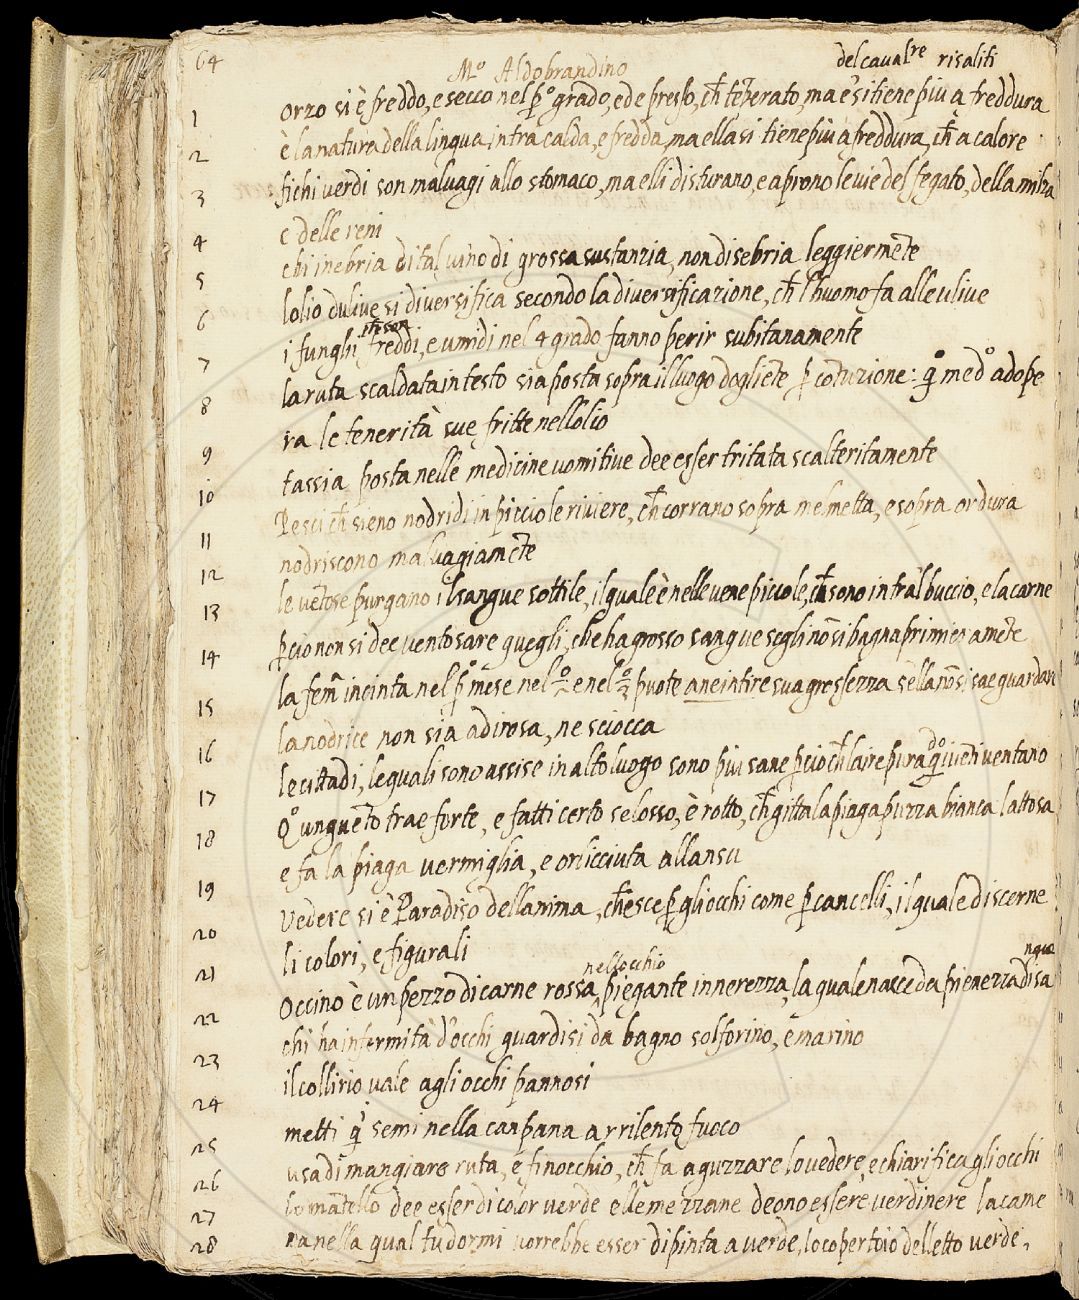 64
Mº Aldobrandino
del caualre risaliti
1 orzo si è freddo, e secco nel pº grado, ed e presso, ch̄ tēperato, ma e si tiene piu a freddura
2 è la natura della lingua intra calda, e fredda, ma ella si tiene più a freddura, ch̄ a calore
3 fichi verdi son maluagi allo stomaco, ma elli disturano, e aprono le vie del fegato, della milza
e delle reni
4 chi inebria di tal uino di grossa sustanzia, non disebria leggiermēte
5 lolio duliue si diuersifica secondo la diuersificazione, ch̄ lhuomo fa alle uliue
6 i funghi freddi, e umidi nel 4 grado fanno perir subitanamente
7 la ruta scaldata in testo sia posta sopra il luogo dogliēte p coturzione: qº medº adope
8 ra le tenerità sue fritte nellolio
9 tassia posta nelle medicine uomitiue dee esser tritata scalteritamente
10 Pesci ch̄ sieno nodridi in picciole riuiere, ch̄ corrano sopra melmetta, e sopra ordura
11 nodriscono maluagiamēte
12 le uētose purgano il sangue sottile, il quale è nelle uene piccole, ch̄ sono intra'l buccio, e la carne
13 pcio non si dee uentosare quegli, che ha grosso sangue segli nō si bagna primieramēte
14 la fem̄ incinta nel pº mese nel 2º e nel 3º puote aneintire sua grossezza sella nō si sae guardare
15 la nodrice non sia adirosa, ne sciocca
16 le cittadi, le quali sono assise in alto luogo sono piu sane pcioch̄ laire pura qdo iuēti uentano
17 Qº unguēto trae forte, e fatti certo se losso, è rotto, ch̄ gitta la piaga puzza bianca lattosa
18 e fa la piaga uermiglia, e orlicciuta allansu
19 Vedere si è Paradiso dellanima, ch̄ esce p gli occhi come p cancelli, il quale discerne
20 li colori, e figurali
nellocchio
ngue
21 Occino è un pezzo di carne rossa, piegante in nerezza, la qual nasce da pienezza di sa
22 chi ha infermità d'occhi guardisi da bagno solforino, e marino
23 il collirio uale agli occhi pannosi
24 metti q̄ semi nella canpana a rrilento fuoco
25 usa di mangiare ruta, e finocchio, ch̄ fa aguzzare lo uedere, e chiarifica gli occhi
26 lo mātello dee esser di color uerde e lle mezzane deono essere uerdi nere la came
27 ra nella qual tu dormi uorrebbe esser dipinta a uerde, lo copertoio del letto uerde,
28